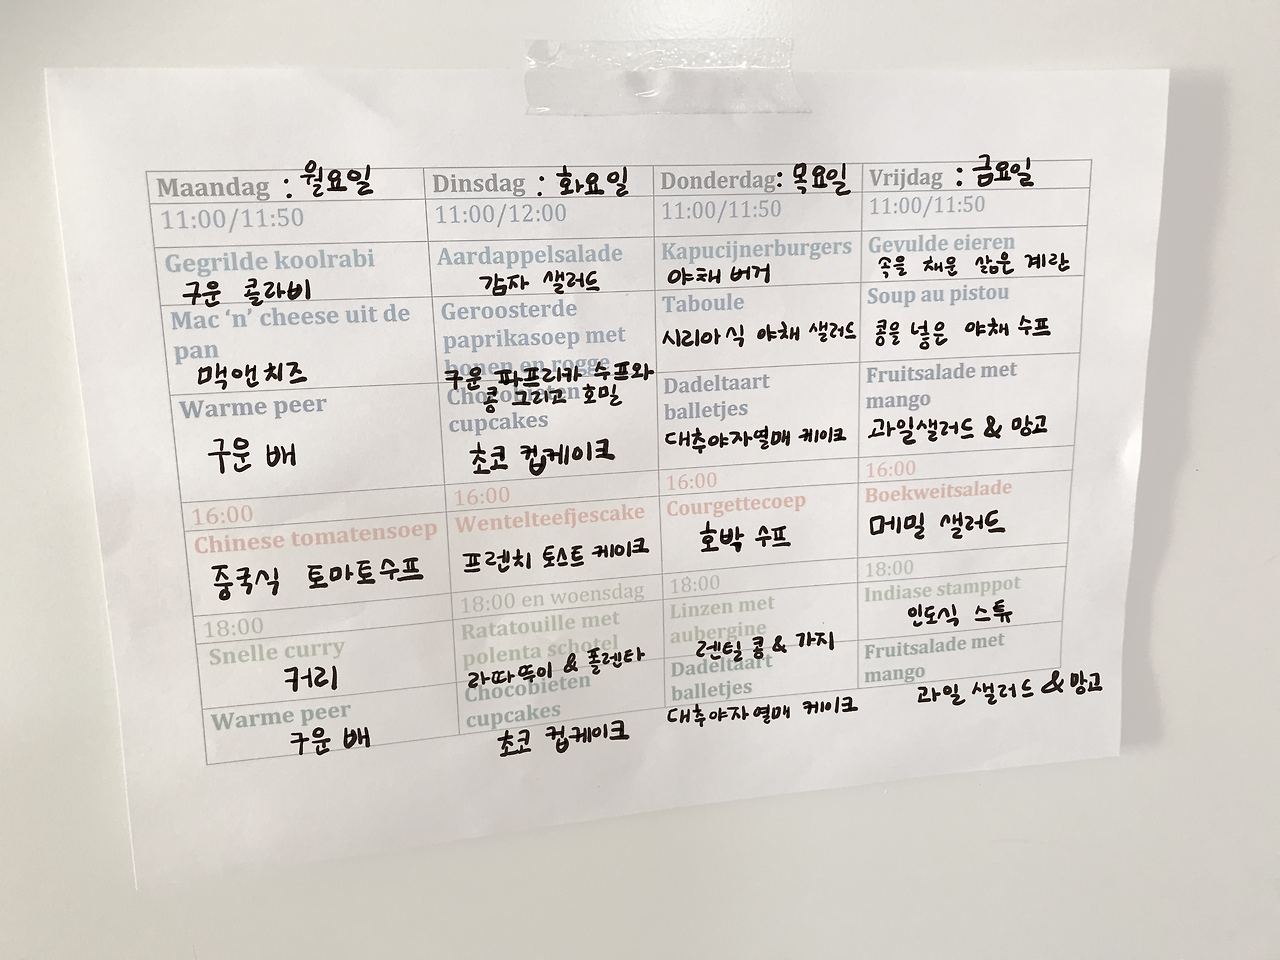 Maandag : 월요일
11:00/11:50
Gegrilde koolrabi
구운 콜라비
Mac ‘n’ cheese uit de
pan
맥앤치즈
Warme peer
구운 배
16:00
Chinese tomatensoep
중국식 토마토수프
18:00
Snelle curry
커리
Warme peer
구운 배
Dinsdag : 화요일
11:00/12:00
Aardappelsalade
감자 샐러드
Geroosterde
paprikasoep met
bonen en rogge
구운 파프리카 수프와
콩 그리고 호밀
Chocobieten
cupcakes
초코 컵케이크
16:00
Wentelteefjescake
프렌치 토스트 케이크
18:00 en woensdag
Ratatouille met
polenta schotel
라따뚜이 & 폴렌타
Chocobieten
cupcakes
초코 컵케이크
Donderdag: 목요일
11:00/11:50
Kapucijnerburgers
야채 버거
Taboule
시리아식 야채 샐러드
Dadeltaart
balletjes
대추야자열매 케이크
16:00
Courgettecoep
호박 수프
18:00
Linzen met
aubergine
렌틸 콩 & 가지
Dadeltaart
balletjes
대추야자열매 케이크
Vrijdag : 금요일
11:00/11:50
Gevulde eieren
속을 채운 삶은 계란
Soup au pistou
콩을 넣은 야채 수프
Fruitsalade met
mango
과일샐러드 & 망고
16:00
Boekweitsalade
메밀 샐러드
18:00
Indiase stamppot
인도식 스튜
Fruitsalade met
mango
과일 샐러드 & 망고